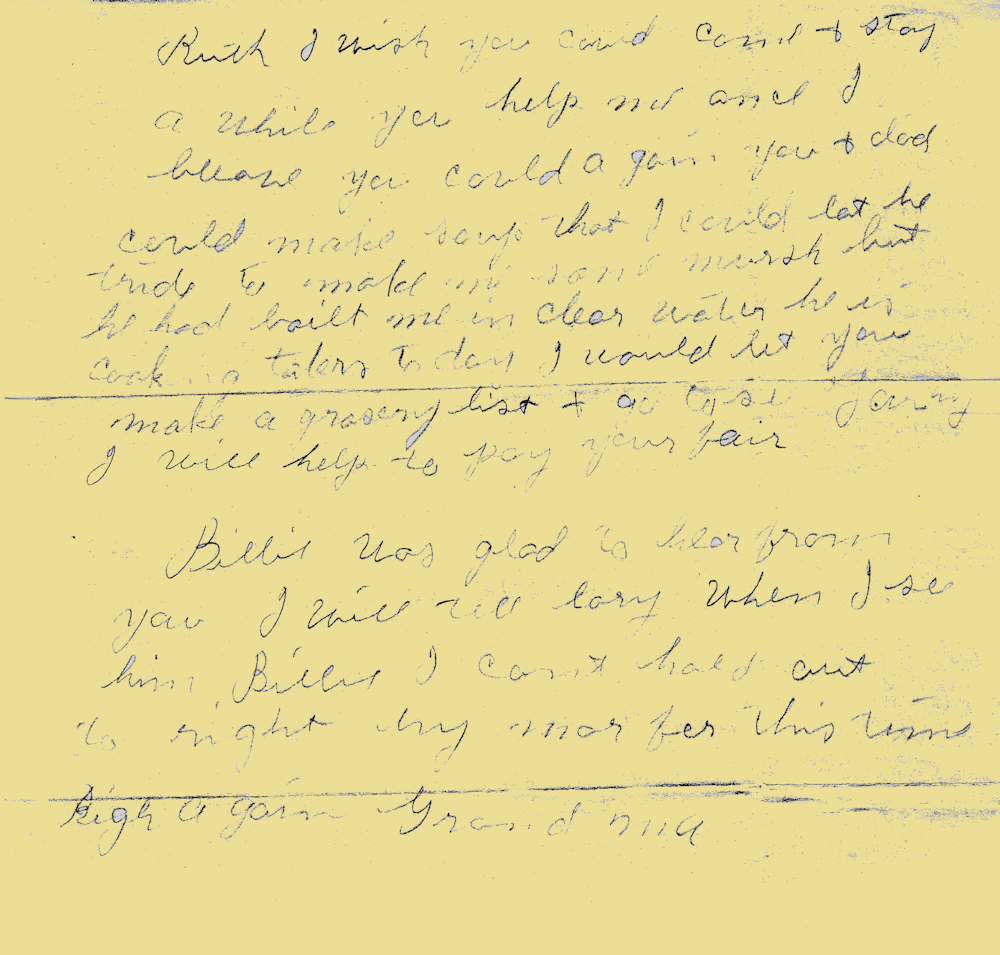 Ruth I wish you could come + stay
a while you help me and I
beleave you could a gain you + dad
could make soup that I could eat he
tride to make me some mursh but
he had boilt me in clear water he is
cooking taters to day I would let you
make a grosery list + go to se
I will help to pay your fair
Billie was glad to hear from
you I will tell lary when I se
him Billie I cant hold out
to right hry mor fer this time
righ a gain Grand ma